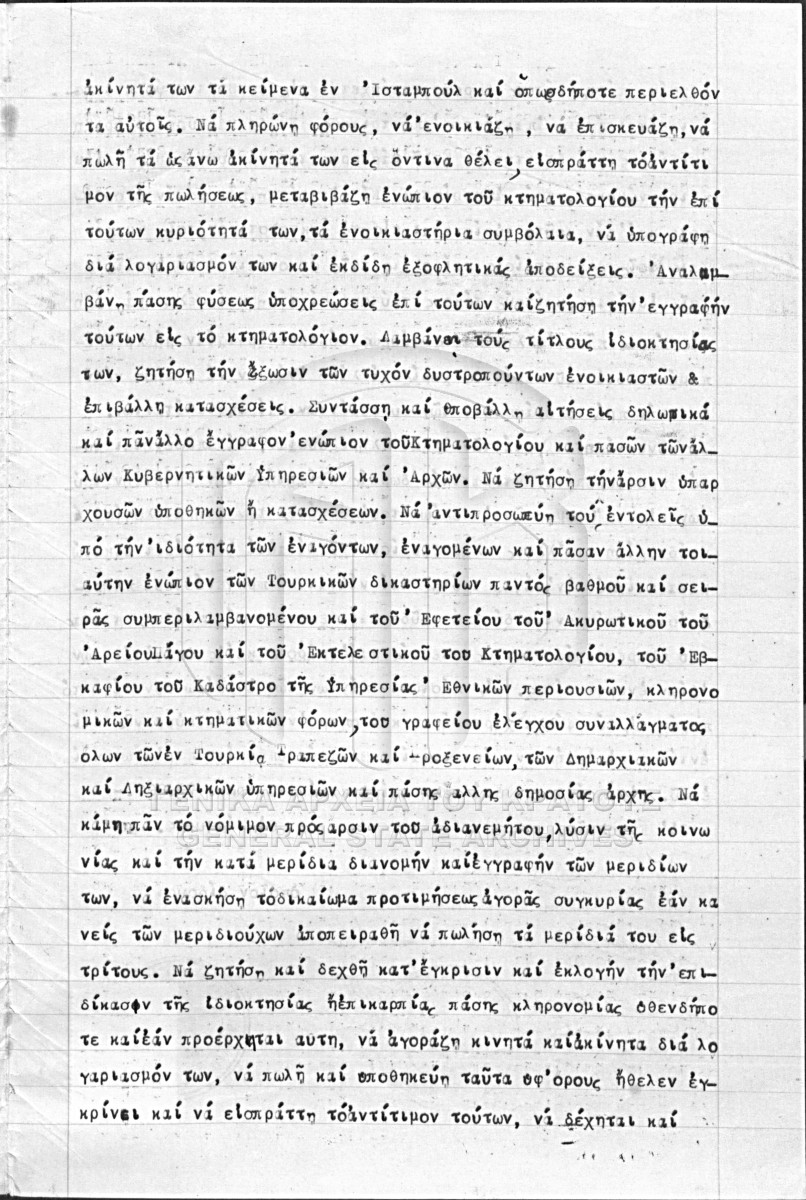 ἀκίνητά των τά κείμενα ἐν Ἰσταμπούλ καί ὁπωσδήποτε περιελθόν
τα αὐτοῖς. Νά πληρώνῃ φόρους, νά ἐνοικιάζῃ, νά ἐπισκευάζῃ, νά
πωλῇ τά ὡς ἄνω ἀκίνητά των εἰς ὅντινα θέλει, εἰσπράττῃ τό ἀντίτι
μον τῆς πωλήσεως, μεταβιβάζῃ ἐνώπιον τοῦ κτηματολογίου τήν ἐπί
τούτων κυριότητά των, τά ἐνοικιαστήρια συμβόλαια, νά ὑπογράφῃ
διά λογαριασμόν των καί ἐκδίδῃ ἐξοφλητικάς ἀποδείξεις. Ἀναλαμ-
βάνῃ πάσης φύσεως ὑποχρεώσεις ἐπί τούτων καί ζητήσῃ τήν ἐγγραφήν
τούτων εἰς τό κτηματολόγιον. Λαμβάνει τούς τίτλους ἰδιοκτησίας
των, ζητήσῃ τήν ἔξωσιν τῶν τυχόν δυστροπούντων ἐνοικιαστῶν &
ἐπιβάλλῃ κατασχέσεις. Συντάσσῃ καί ὑποβάλλῃ αἰτήσεις δηλωτικά
καί πᾶν ἄλλο ἔγγραφον ἐνώπιον τοῦ Κτηματολογίου καί πασῶν τῶν ἀλ-
λων Κυβερνητικῶν Ὑπηρεσιῶν καί Ἀρχῶν. Νά ζητήσῃ τήν ἄρσιν ὑπαρ
χουσῶν ὑποθηκῶν ἤ κατασχέσεων. Νά ἀντιπροσωπεύῃ τούς ἐντολεῖς ὑ-
πό τήν ἰδιότητα τῶν ἐναγόντων, ἐναγομένων καί πᾶσαν ἄλλην τοι-
αύτην ἐνώπιον τῶν Τουρκικῶν δικαστηρίων παντός βαθμοῦ καί σει-
ρᾶς συμπεριλαμβανομένου καί τοῦ Ἐφετείου τοῦ Ἀκυρωτικοῦ τοῦ
Ἀρείου Πάγου καί τοῦ Ἐκτελεστικοῦ του Κτηματολογίου, τοῦ Ἐβ-
καφίου τοῦ Καδάστρο τῆς Ὑπηρεσίας Ἐθνικῶν περιουσιῶν, κληρονο
μικῶν καί κτηματικῶν φόρων, του γραφείου ἐλέγχου συναλλάγματος
ὅλων τῶν ἐν Τουρκίᾳ Τραπεζῶν καί Προξενείων, τῶν Δημαρχιακῶν
καί Ληξιαρχικῶν ὑπηρεσιῶν καί πάσης αλλης δημοσίας ἀρχης. Νά
κάμῃ πᾶν τό νόμιμον πρός ἄρσιν τοῦ ἀδιανεμήτου, λύσιν τῆς κοινω
νίας καί τήν κατά μερίδια διανομήν καί ἐγγραφήν τῶν μεριδίων
των, νά ἐνασκήσῃ τό δικαίωμα προτιμήσεως ἀγορᾶς συγκυρίας ἐάν κα
νείς τῶν μεριδιούχων ἀποπειραθῇ νά πωλήσῃ τά μερίδιά του εἰς
τρίτους. Νά ζητήσῃ καί δεχθῇ κατ' ἔγκρισιν καί ἐκλογήν τήν ἐπι-
δίκασιν τῆς ἰδιοκτησίας ἤ ἐπικαρπίας πάσης κληρονομίας ὁθενδήπο
τε καί ἐάν προέρχηται αυτη, νά ἀγοράζῃ κινητά καί ἀκίνητα διά λο
γαριασμόν των, νά πωλῇ καί ὑποθηκεύῃ ταῦτα ὑφ' ὅρους ἤθελεν ἐγ-
κρίνει καί νά εἰσπράττῃ τό ἀντίτιμον τούτων, νά δέχηται καί
ΓΕΝΙΚΑ ΑΡΧΕΙΑ ΤΟΥ ΚΡΑΤΟΥΣ
GENERAL STATE ARCHIVES